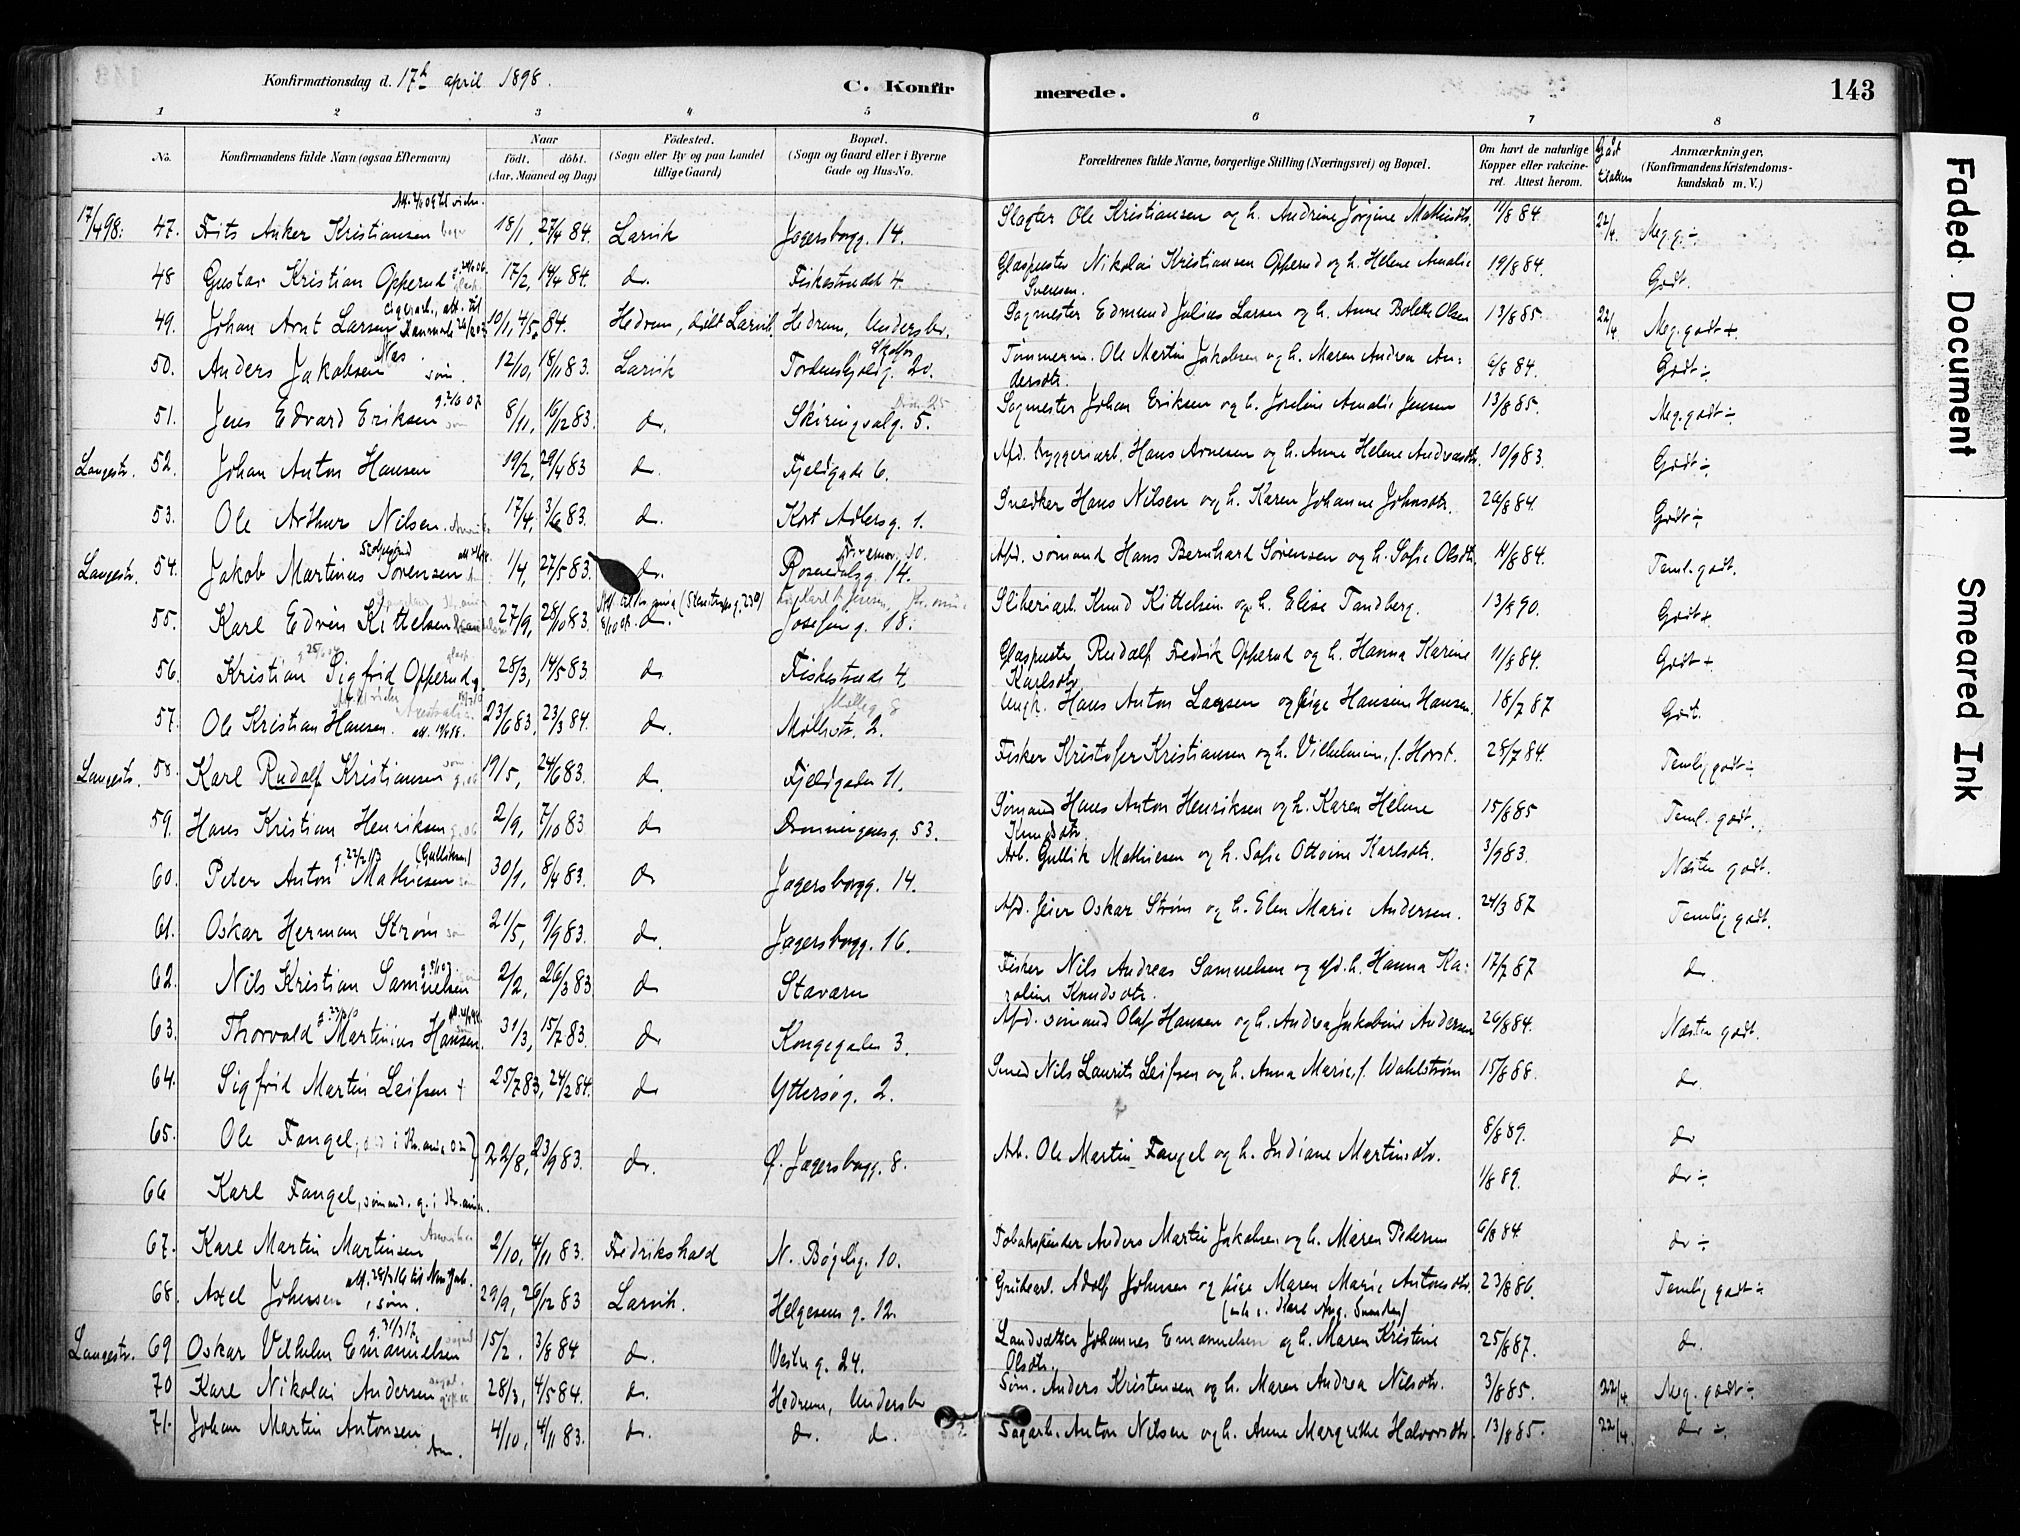 Konfirmationsdag d. 17h april 1898.
C. Konfir merede. 143
1 2 3 4 5 6 7 8
No. Konfirmandens fulde Navn (ogsaa Efternavn) Naar født. døbt. (Aar, Maaned og Dag) Fødested. (Sogn eller By og paa Landet tillige Gaard) Bopæl. (Sogn og Gaard eller i Byerne Gade og Hus-No. Forældrenes fulde Navne, borgerlige Stilling (Næringsvei) og Bopæl. Om havt de naturlige Kopper eller vakcineret. Attest herom. Gaat til alters Anmærkninger. (Konfirmandens Kristendomskundskab m. V.)
17/4 98. 47. Frits Anker Kristiansen 18/1, 27/4 84. Larvik Jegersborgg. 14. Slagter Ole Kristiansen og h. Andrine Jørgine Mathisdtr. 11/8 84. 22/4. Meg. g. ÷
48 Gustav Kristian Opperud 17/2, 14/4 84. do. Fiskestredet 4 Glaspuster Nikolai Kristiansen Opperud og h. Helene Amalie Svensen. 19/8 84. Godt.
49. Johan Arnt Larsen 10/1, 4/5 84. Hedrum, døbt Larvik. Hedrum, Undersbo. Sagmester Edmund Julius Larsen og h. Anne Bolette Olsen 13/8 85. 22/4 Meg. godt +
50. Anders Jakobsen Næs. søm. 12/10, 18/11 83. Larvik Tordenskjoldg. 20. Tømmerm. Ole Martin Jakobsen og h. Maren Andrea Andersdtr. 6/8 84. Godt ÷
51. Jens Edvard Eriksen 8/11, 16/12 83. do. Skiringsalg. 5. Sagmester Johan Eriksen og h. Josefine Amalie Jensen 13/8 85. Meg. godt ÷
Langestr. 52. Johan Anton Hansen 19/2, 29/4 83 do. Fjeldgade 6. Afd. bryggeriarb. Hans Arnesen og h. Anne Helene Andreasdtr. 10/9 83. Godt ÷
53. Ole Arthur Nilsen. 17/4, 3/6 83. do. Kort Adlersg. 1. Snedker Hans Nilsen og h. Karen Johanne Johnsdtr. 26/8 84. Godt ÷
Langestr. 54. Jakob Martinius Sørensen 1/4, 27/5 83. do. Rosendalsg. 14. Afd. sømand Hans Bernhard Sørensen og h. Sofie Olsdtr. 11/8 84. Teml. godt.
55. Karl Edvin Kittelsen 27/9, 28/10 83. do. Josefineg. 18. Sliberiarb. Knud Kittelsen og h. Elise Tandberg. 13/8 90. Godt +
56. Kristian Sigfrid Opperud 28/3, 14/5 83. do Fiskestrede 4 Glaspuster Rudolf Fredrik Opperud og h. Hanna Karine Karlsdtr 11/8 84. Godt +
57. Ole Kristian Hansen. 23/6 83, 23/3 84. do. Møllestr. 2. Ungk. Hans Anton Larsen og pige Hansine Hansen. 18/7 87 Godt.
Langestr. 58. Karl Rudolf Kristiansen 19/5, 24/6 83. do Fjeldgaden 11. Fisker Kristofer Kristiansen og h. Vilhelmine, f. Horst. 28/7 84. Temlig godt ÷
59. Hans Kristian Henriksen 2/9, 7/10 83. do Dronningensg. 53. Sømand Hans Anton Henriksen og h. Karen Helene Knudsdtr 15/8 85 Teml. godt.
60. Peter Anton Mathiesen (Gulliksen) 30/1, 8/4 83. do Jegersborgg. 14. Arb. Gullik Mathiesen og h. Sofie Ottoine Karlsdtr. 3/9 83. Næsten godt.
61. Oskar Herman Strøm 21/5, 9/9 83. do. Jegersborgg. 16. Afd. feier Oskar Strøm og h. Elen Marie Andersen. 24/3 87 Temlig godt.
62. Nils Kristian Samuelsen 2/2, 26/3 83. do Stavern Fisker Nils Andreas Samuelsen og afd. h. Hanna Karoline Knudsdtr. 17/2 87 do
63. Thorvald Martinius Hansen. 31/3, 15/7 83. do Kongegaden 3. Afd. sømand Olaf Hansen og h. Andrea Jakobine Andersen 26/8 84. Næsten godt.
64. Sigfrid Martin Leifsen + 25/7 83, 24/2 84. do Yttersøg. 2. Smed Nils Laurits Leifsen og h. Anna Marie, f. Wahlstrøm 15/8 88. do.
65. Ole Fangel, 22/8, 23/9 83. do. Ø. Jegersborgg. 8. Arb. Ole Martin Fangel og h. Indiane Martinsdtr. 8/8 89. do
66 Karl Fangel, sømand. g. i Kr.ania. 1/8 89. do ÷
67. Karl Martin Martinsen 2/10, 4/11 83. Fredrikshald N. Bøgelig. 10. Tobakspinder Anders Martin Jakobsen og h. Maren Pedersen 6/8 84. do ÷
68. Axel Johnsen, søm. 29/9, 26/12 83 Larvik. Helgesens g. 12. Grubearb. Adolf Johnsen og pige Maren Marie Antonsdtr. 23/8 86. Temlig godt ÷
Langestr. 69 Oskar Vilhelm Emanuelsen 15/2. 3/8 84 do. Vestre g. 24. Landsætter Johannes Emanuelsen og h. Maren Kristine Olsdtr. 25/8 87. do.
70 Karl Nikolai Andersen 28/3, 4/5 84. do. Hedrum, Undersbo Søm. Anders Kristensen og h. Maren Andrea Nilsdtr. 3/8 85. 22/4 Meg. godt ÷
71. Johan Martin Antonsen 4/10, 4/11 83. do. do. do. Sagarb. Anton Nilsen og h. Anne Margrethe Halvorsdtr. 13/8 85. 22/4. do ÷
Faded Document
Smeared Ink